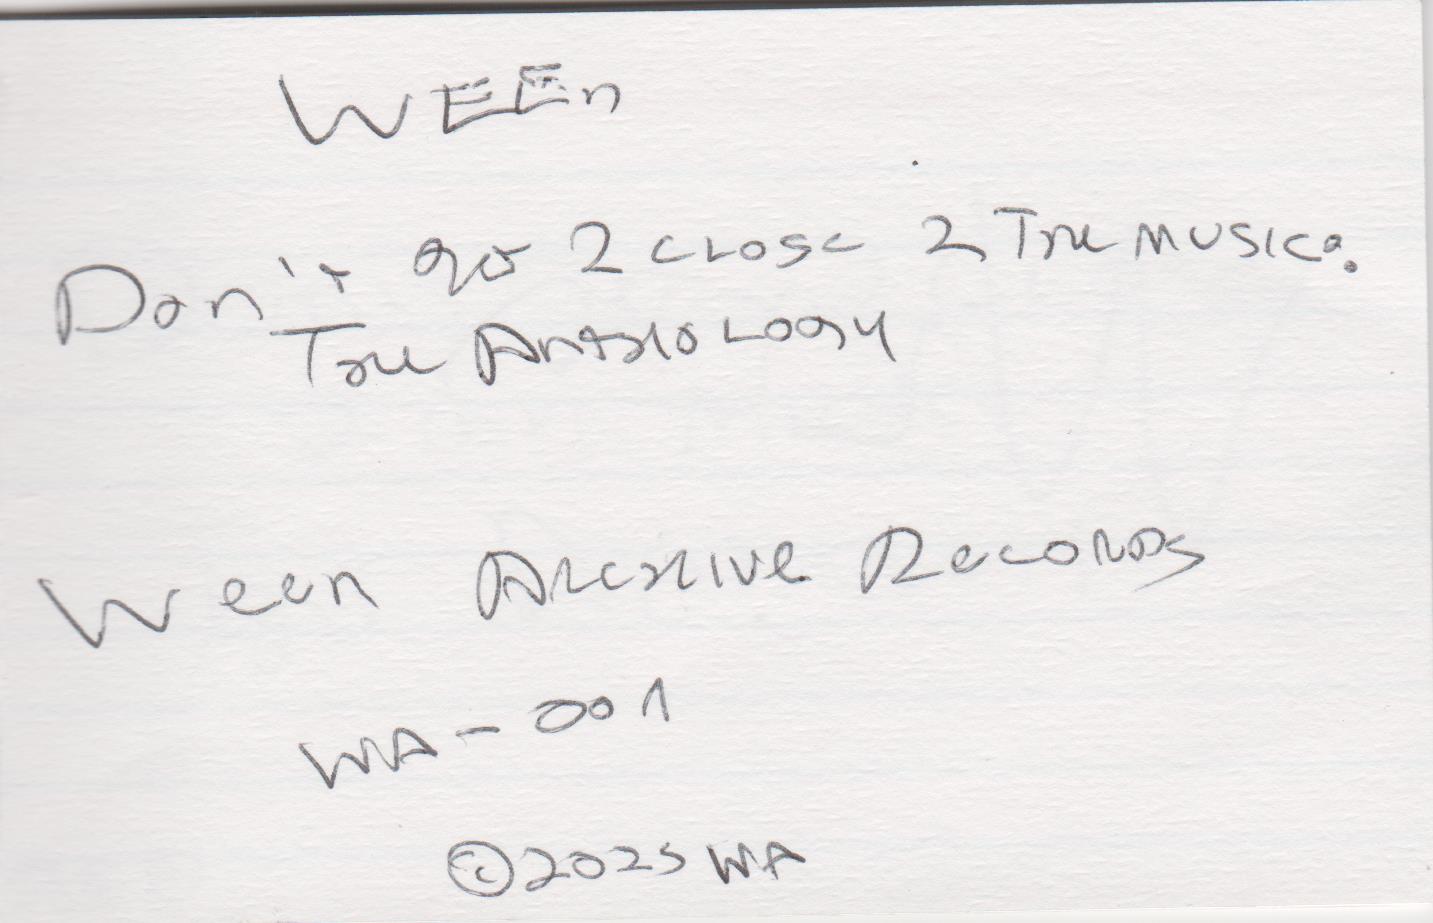 WEEn
Don't go 2 CLOSE 2 The MUSIC.
The Anthology
Ween Archive Records
WA-001
©2025 WA